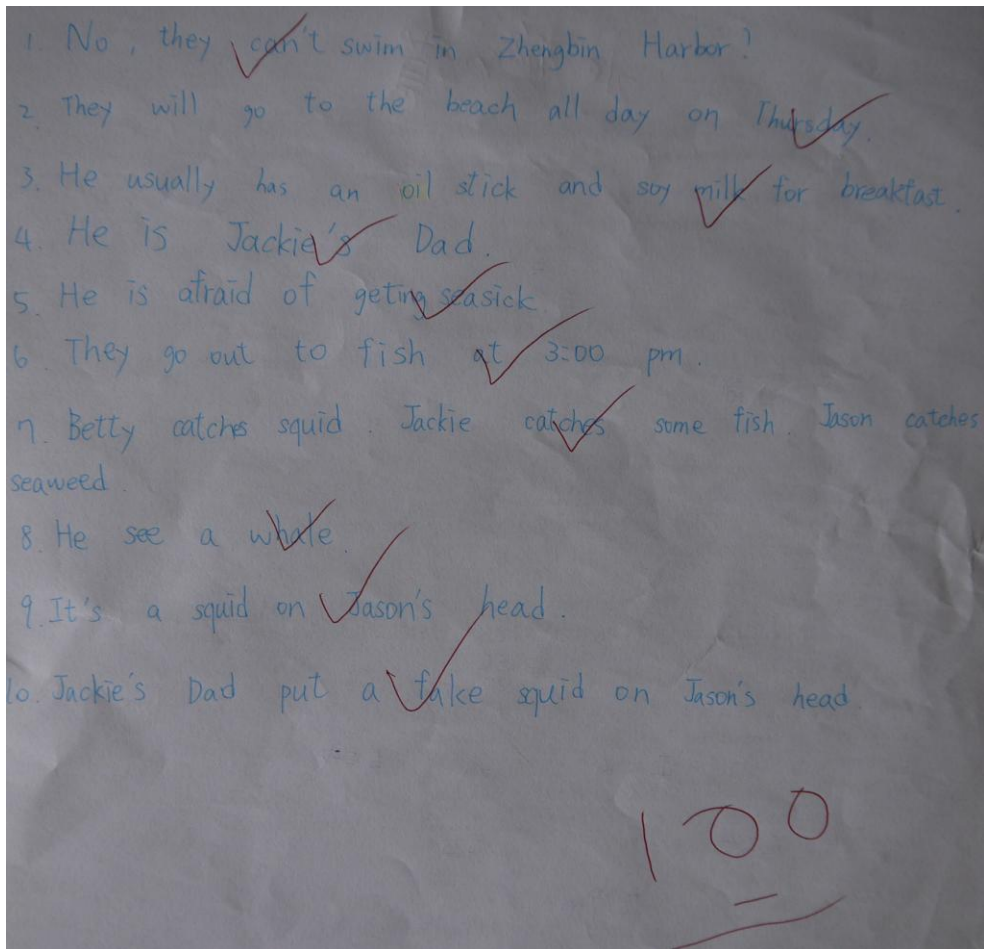 1. No, they can't swim in Zhengbin Harbor?
2. They will go to the beach all day on Thursday.
3. He usually has an oil stick and soy milk for breakfast.
4. He is Jackie's Dad.
5. He is afraid of geting seasick.
6 They go out to fish at 3:00 pm.
7. Betty catches squid. Jackie catches some fish. Jason catches
seaweed.
8. He see a whale.
9. It's a squid on Jason's head.
10. Jackie's Dad put a fake squid on Jason's head.
100